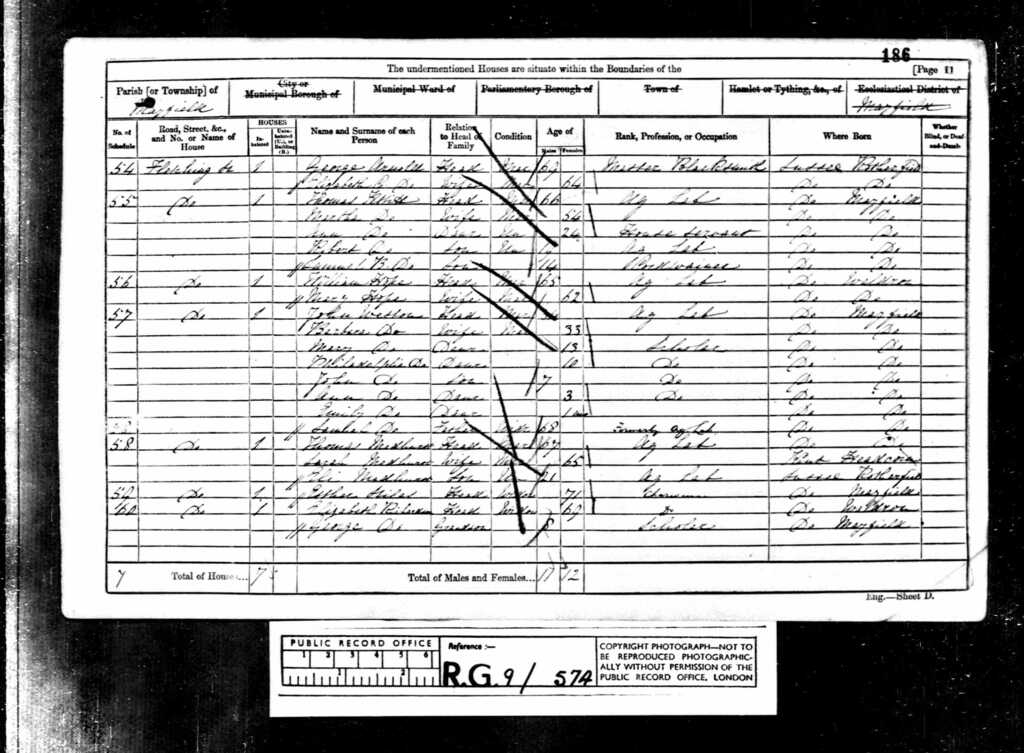 186
The undermentioned Houses are situate within the Boundaries of the
[Page 11
Parish [or Township] of
Mayfield
City or Municipal Borough of
Municipal Ward of
Parliamentary Borough of
Town of
Hamlet or Tything, &c., of
Ecclesiastical District of
Mayfield
No. of Schedule
Road, Street, &c., and No. or Name of House
HOUSES
Inhabited
Uninhabited (U.), or Building (B.)
Name and Surname of each Person
Relation to Head of Family
Condition
Age of
Males
Females
Rank, Profession, or Occupation
Where Born
Whether Blind, or Deaf-and-Dumb
54 Fletching St 1 George Arnold Head Mar 69 Master Blacksmith Sussex Rotherfield
Elizabeth Do Wife 64 Do Do
55 Do 1 Thomas Head 66 Ag Lab Do Mayfield
Martha Do Wife 54 Do Do
Ann Do Daur Un 24 House Servant Do Do
Robert Do Son Un Ag Lab Do Do
Samuel Do Son 14 Do Do
56 Do 1 William Hope Head Mar 65 Ag Lab Do Waldron
Mary Hope Wife 62 Do Do
57 Do 1 John Weston Head Mar Ag Lab Do Mayfield
Do Wife Mar 33 Do Do
Mary Do Daur 13 Scholar Do Do
Philadelphia Do Daur 10 Do Do Do
John Do Son 7 Do Do Do
Ann Do Daur 3 Do Do Do
Emily Do Daur Do Do
Do 68 Formerly Ag Lab Do Do
58 Do 1 Thomas Medhurst Head Mar Ag Lab Do Do
Sarah Medhurst Wife 65 Kent Headcorn
Medhurst Son Un 21 Ag Lab Sussex Rotherfield
59 Do 1 Esther Head Widow 71 Do Mayfield
60 Do 1 Elizabeth Head Widow 69 Do Waldron
George Do Grandson 8 Scholar Do Mayfield
7 Total of Houses... 7 Total of Males and Females... 11 12
Eng.—Sheet D.
PUBLIC RECORD OFFICE
1 2 3 4 5 6
1 2
Reference :—
R.G. 9/ 574
COPYRIGHT PHOTOGRAPH—NOT TO
BE REPRODUCED PHOTOGRAPHIC-
ALLY WITHOUT PERMISSION OF THE
PUBLIC RECORD OFFICE, LONDON